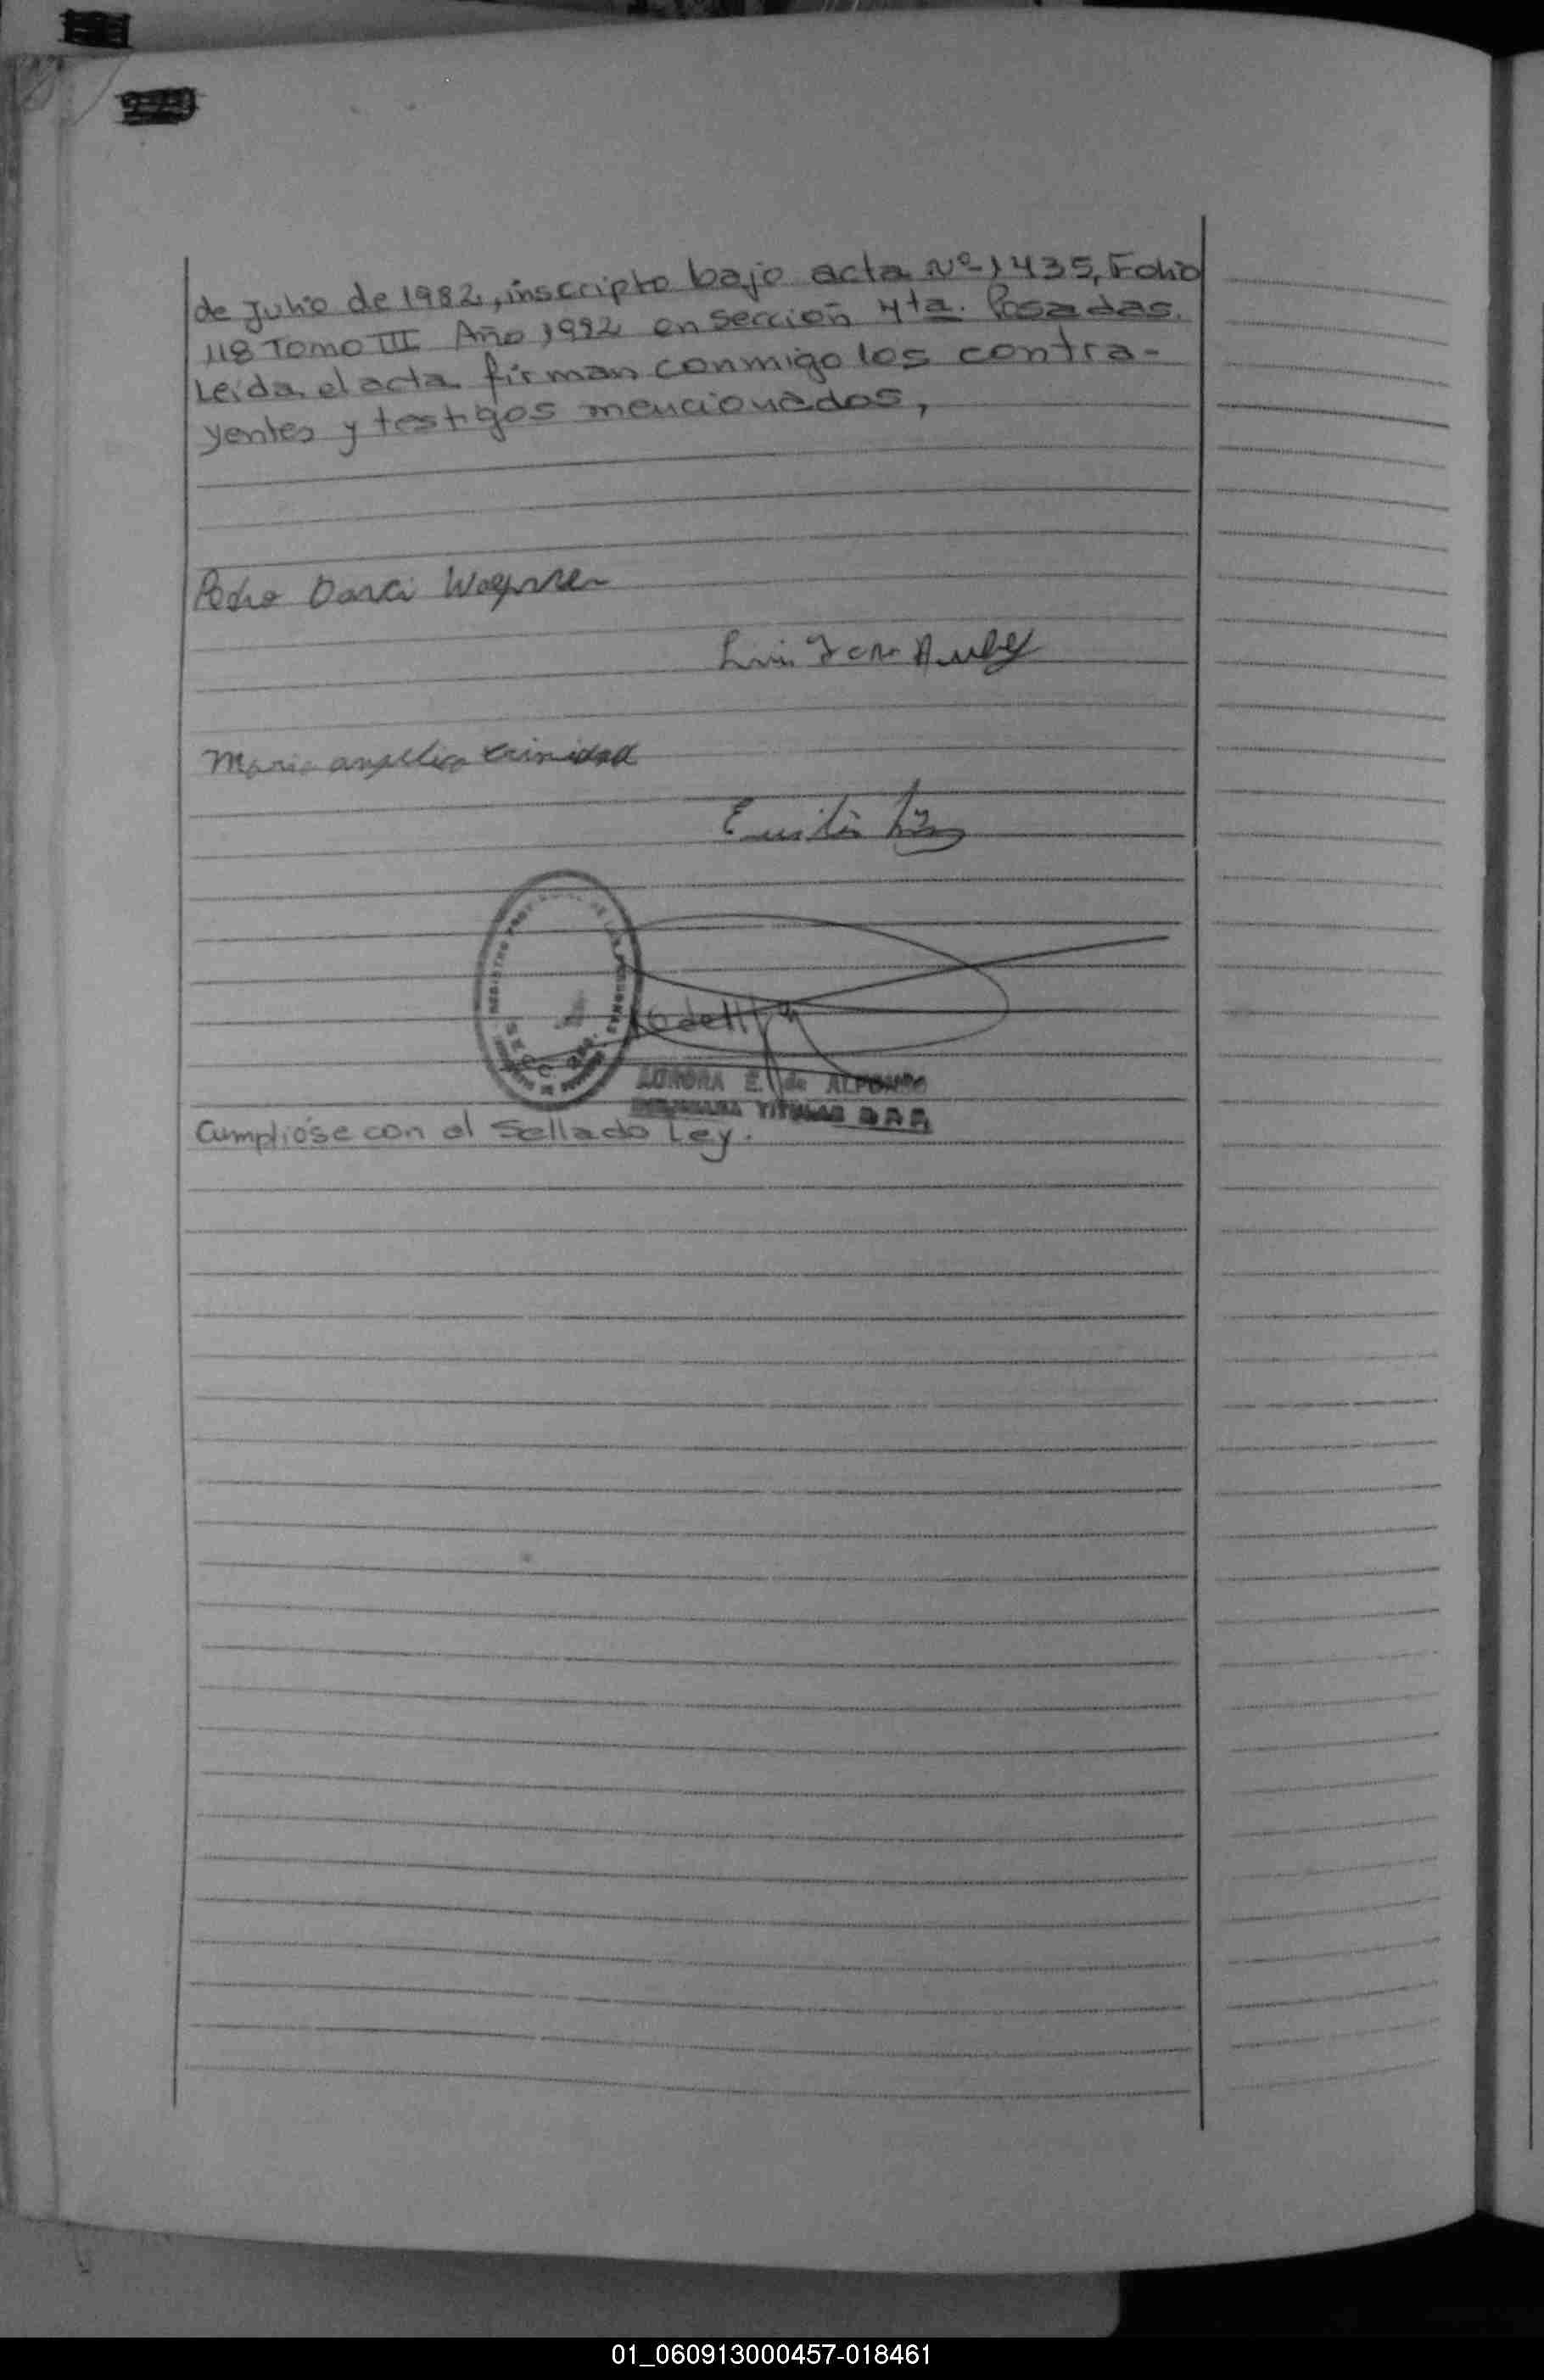 de Julio de 1982, inscripto bajo acta Nº 1435, Folio
118 Tomo III Año 1982 en Sección 4ta. Posadas.
Leída el acta firman conmigo los contra-
yentes y testigos mencionados,
Pedro Darci
Luis
Maria angelica trinidad
Emilio
REGISTRO
PERSONAS
SECC.
AURORA E. de ALFONSO
TITULAR
Cumplióse con el Sellado Ley.
01_060913000457-018461